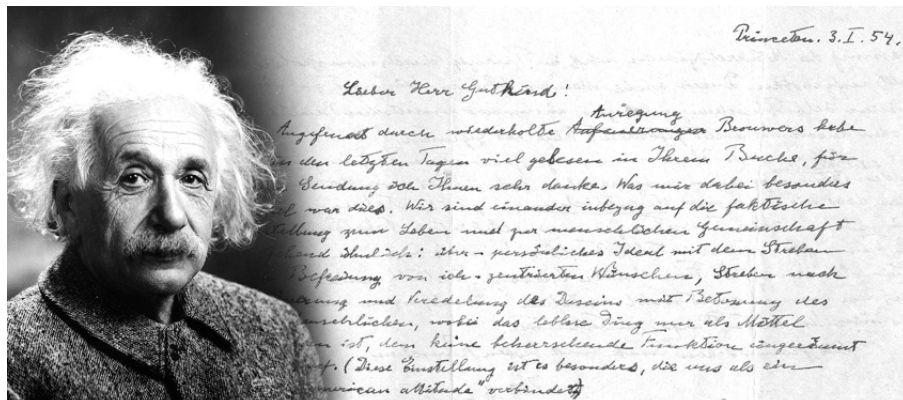 Princeton. 3. I. 54.
Lieber Herr Gutkind!
Anregung
Angefeuert durch wiederholte Brouwers habe
in den letzten Tagen viel gelesen in Ihrem Buche, für
Sendung ich Ihnen sehr danke. Was mir dabei besonders
war dies. Wir sind einander inbezug auf die faktische
stellung zum Leben und zur menschlichen Gemeinschaft
ähnlich: über-persönliches Ideal mit dem Streben
Befreiung von ich-zentrierten Wünschen, Streben nach
und Veredelung des Daseins mit Betonung des
menschlichen, wobei das leblose Ding nur als Mittel
ist, dem keine beherrschende Funktion eingeräumt
(Diese Einstellung ist es besonders, die uns als ein
american attitude" verbindet)